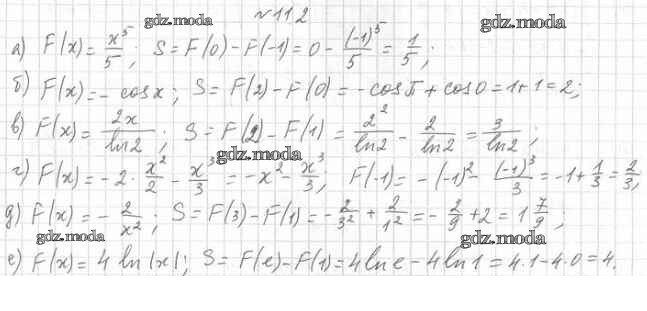 № 112
gdz.moda gdz.moda
а) F(x) = x⁵/5; S = F(0) - F(-1) = 0 - (-1)⁵/5 = 1/5;
б) F(x) = - cos x; S = F(2) - F(0) = - cos π + cos 0 = 1+1 = 2;
в) F(x) = 2x/ln2; S = F(2) - F(1) = 2²/ln2 - 2/ln2 = 3/ln2;
gdz.moda
г) F(x) = - 2 · x²/2 - x³/3 = - x² - x³/3; F(-1) = - (-1)² - (-1)³/3 = -1 + 1/3 = 2/3;
д) F(x) = - 2/x²; S = F(3) - F(1) = - 2/3² + 2/1² = - 2/9 + 2 = 1 7/9;
gdz.moda gdz.moda
е) F(x) = 4 ln |x|; S = F(e) - F(1) = 4 ln e - 4 ln 1 = 4·1 - 4·0 = 4.